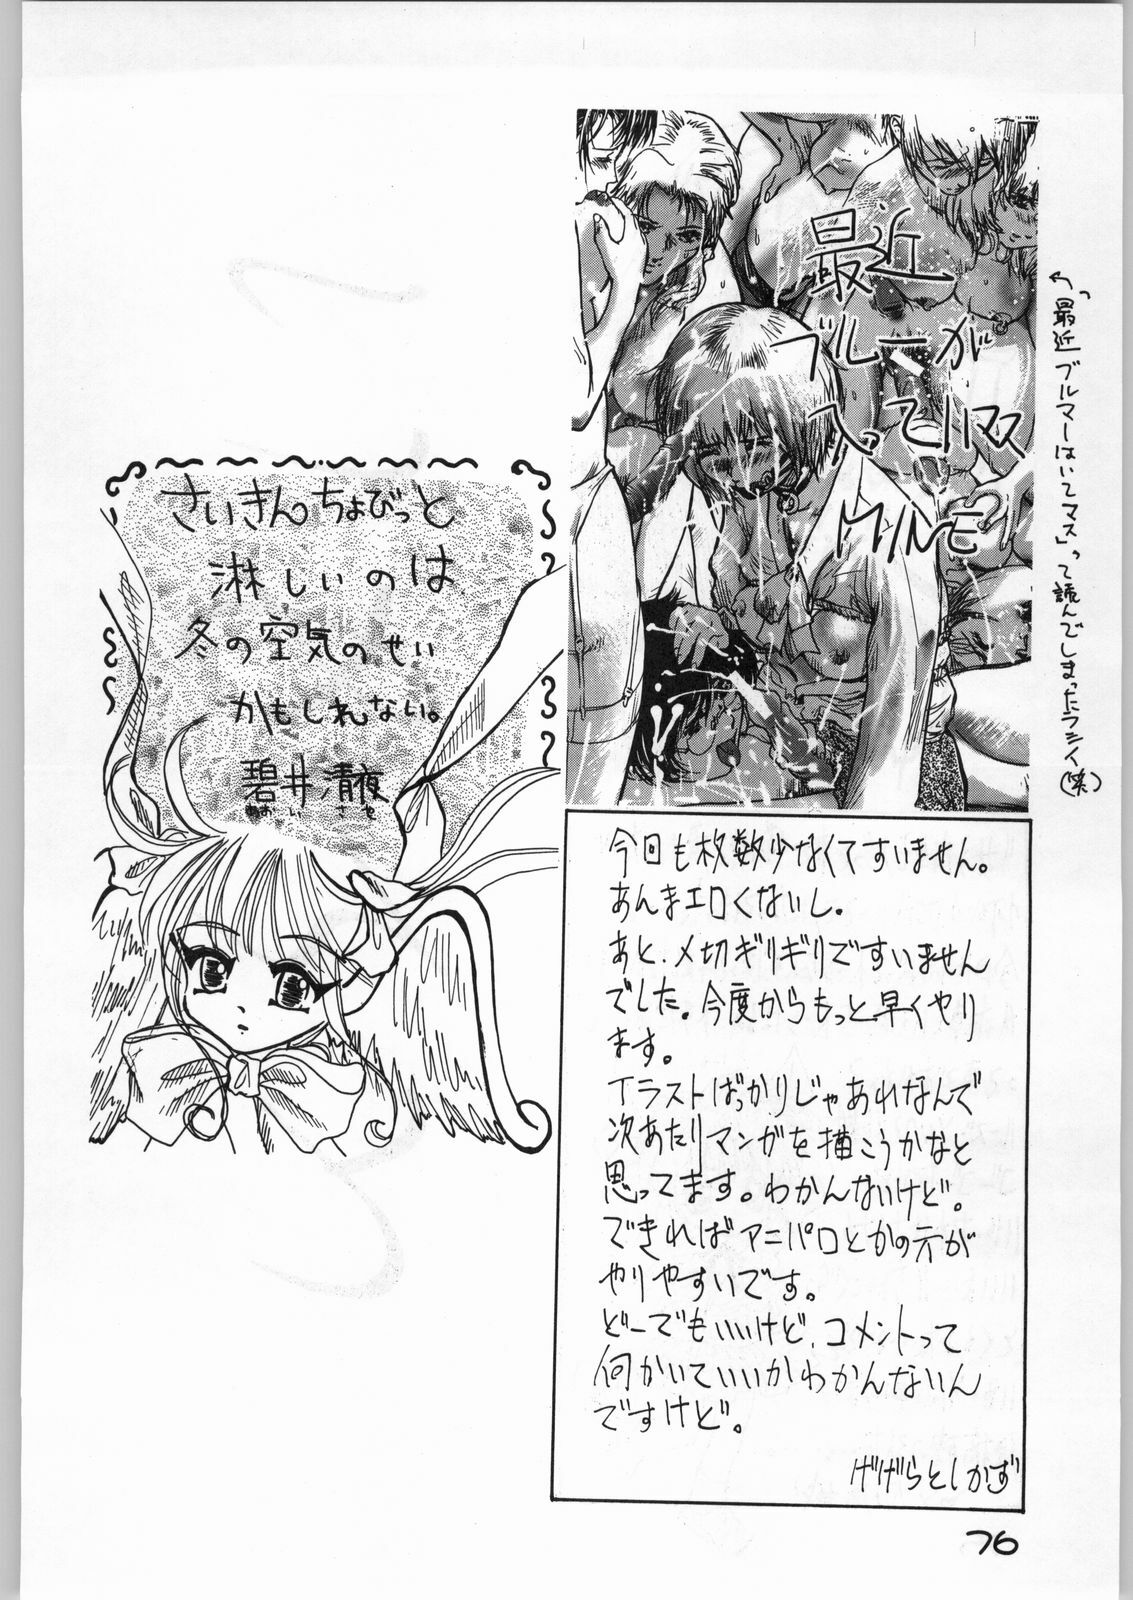 最近
ブルーが
入ってハマス
MINE
「最近ブルマーはいてマス」って読んでしまったラシイ(笑)
さいきんちょびっと
淋しいのは
冬の空気のせい
かもしれない。
碧井清夜
あおい さや
今回も枚数少なくてすいません。
あんまエロくないし。
あと、〆切ギリギリですいません
でした。今度からもっと早くやり
ます。
イラストばっかりじゃあれなんで
次あたりマンガを描こうかなと
思ってます。わかんないけど。
できればアニパロとかの方が
やりやすいです。
どーでもいいけど、コメントって
何かいていいかわかんないん
ですけど。
げげらとしかず
76